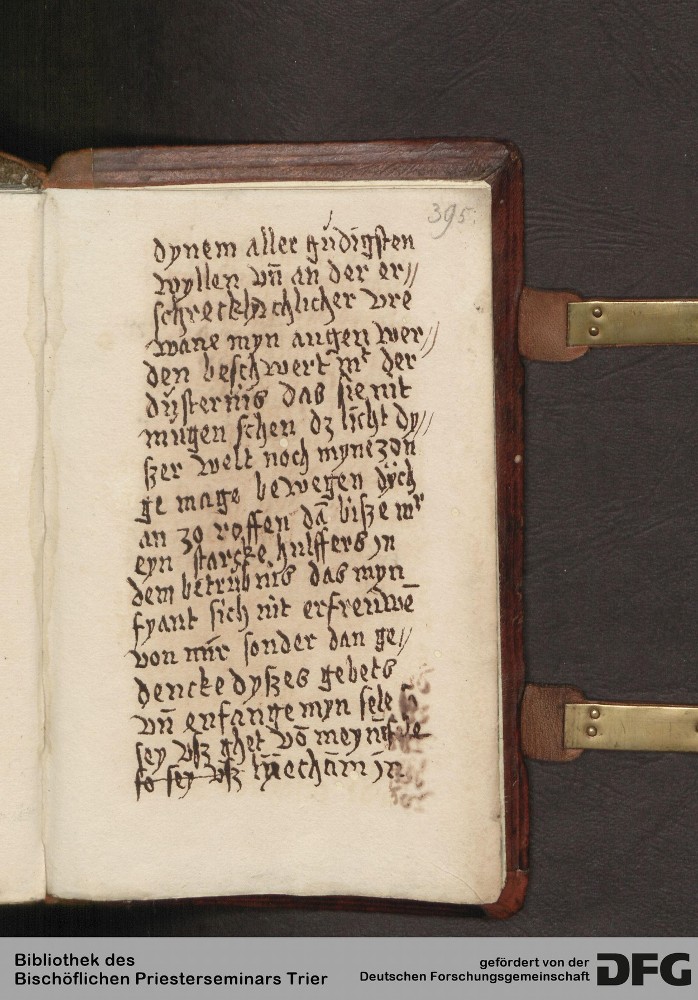 395
dynem aller gnidigsten
wyllen vn̄ an der er//
schrecklychlicher vre
wane myn augen wer//
den beschwert mt der
dusternis das sie nit
mügen sehen dz licht dy//
szer welt noch myne zon
ge mage bewegen dich
an zo roffen dā bisze mr
eyn starcke hulffers jn
dem betrubnis das myn
fyant sich nit erfreuwē
von mir sonder dan ge//
dencke dyszes gebets
vn̄ enfange myn sele
sey vsz ghet vō meynē
lychām jn
Bibliothek des
Bischöflichen Priesterseminars Trier
gefördert von der
Deutschen Forschungsgemeinschaft
DFG